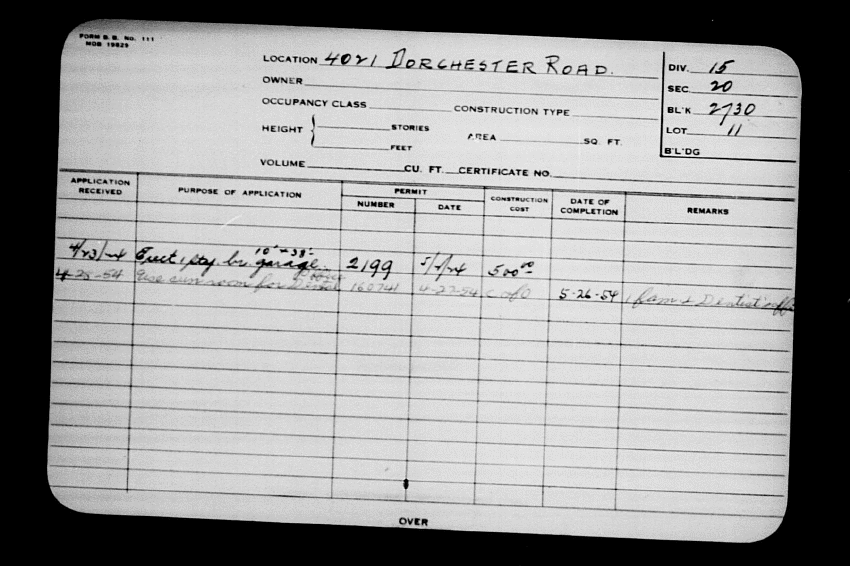 FORM B. B. No. 111
MOB 19829
LOCATION 4021 DORCHESTER ROAD.
OWNER
OCCUPANCY CLASS CONSTRUCTION TYPE
HEIGHT { STORIES AREA SQ. FT.
FEET
VOLUME CU. FT. CERTIFICATE NO.
DIV. 15
SEC. 20
BL'K 2730
LOT 11
B'L'DG
APPLICATION RECEIVED PURPOSE OF APPLICATION PERMIT CONSTRUCTION COST DATE OF COMPLETION REMARKS
NUMBER DATE
10' x 38'
4/23/24 Erect 1 sty. br. garage. 2199 5/1/24 500.00
office
4-28-54 Use sun room for Dentist 160741 4-27-54 C of O 5-26-54 1 fam & Dentist's office
OVER